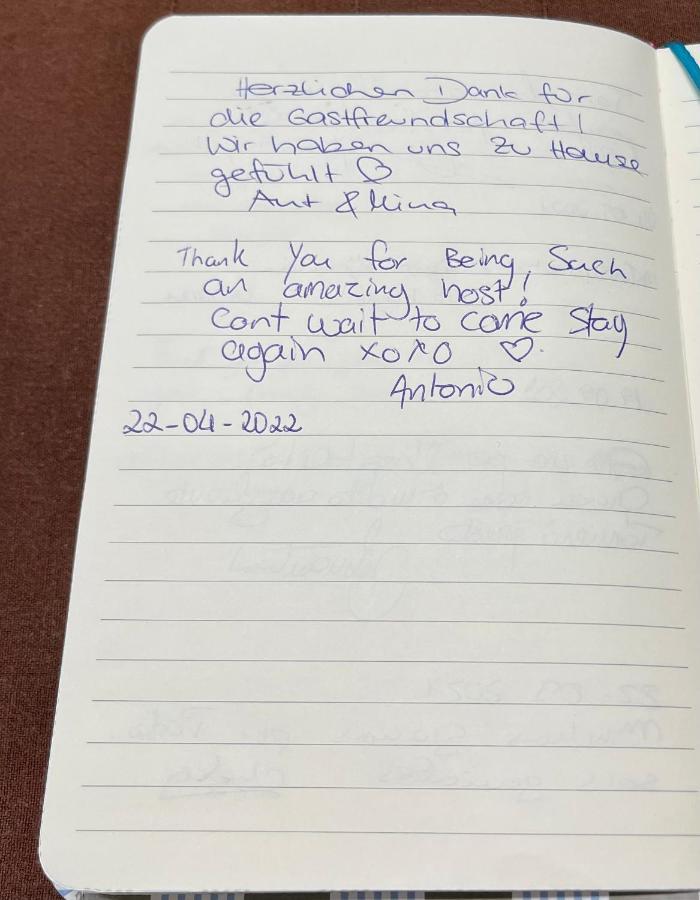 Herzlichen Dank für
die Gastfreundschaft!
Wir haben uns zu Hause
gefühlt ♡
Thank You for Being, Such
an amazing host!
Cont wait to come stay
again xoxo ♡.
Antonio
22-04-2022